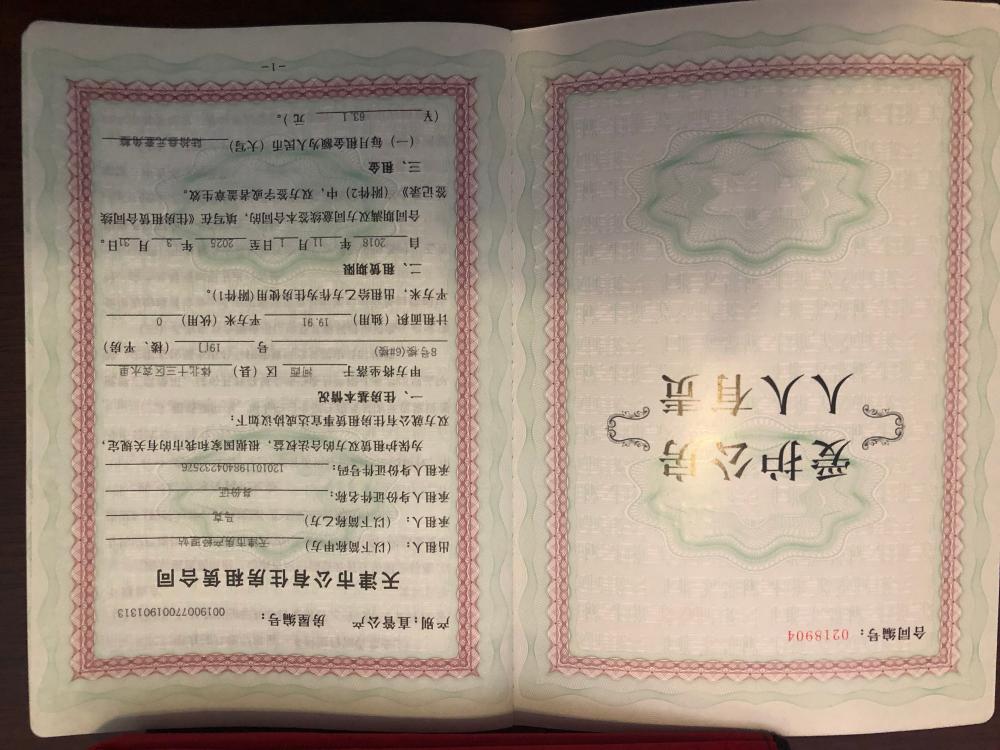 合同编号: 0218904
爱护公房
人人有责
产别:直管公产 房屋编号: 00190077001901313
天津市公有住房租赁合同
出租人:(以下简称甲方) 天津市房产经营站
承租人:(以下简称乙方) 马克
承租人身份证件名称: 身份证
承租人身份证件号码: 120101198404232576
为保护租赁双方的合法权益,根据国家和我市的有关规定,
双方就公有住房租赁事宜达成协议如下:
一、住房基本情况
甲方将坐落于 河西 区(县) 体北十三宾水里
8号楼(6#楼) 号 19门 (楼、平房)
计租面积(独用) 19.91 平方米(伙用) 0
平方米,出租给乙方作为住房使用(附件1)。
二、租赁期限
自 2018 年 11 月 1 日至 2025 年 3 月 31 日。
合同期满双方同意续签本合同的,填写在《住房租赁合同续
签记录》(附件2)中,双方签字或者盖章生效。
三、租金
(一)每月租金额为人民币(大写) 陆拾叁元壹角整
(¥ 63.1 元)。
-1-